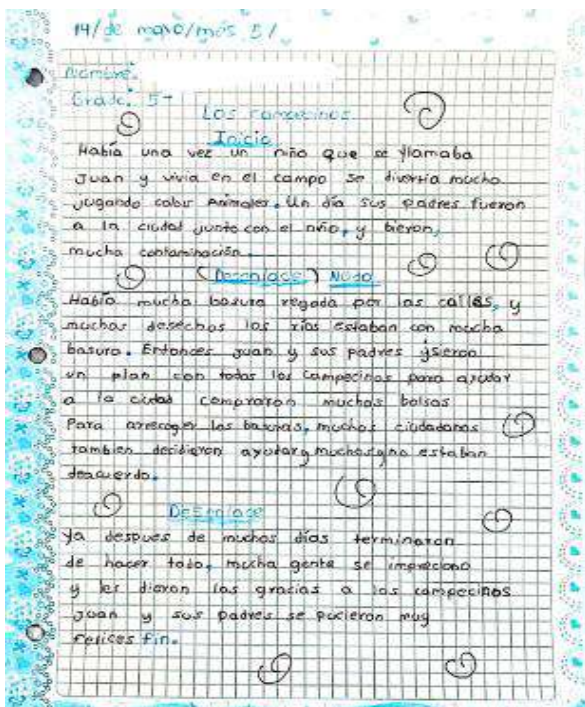 14/de mayo/más 5/
Nombre:
Grado: 5-1
Los campecinos
Inicio
Había una vez un niño que se llamaba
Juan y vivia en el campo se divertia mucho
jugando Animales. Un día sus padres fueron
a la ciudad junto con el niño, y bieron,
mucha contaminación.
(Desenlace) Nudo
Había mucha basura regada por las calles, y
muchos desechos los rios estaban con mucha
basura. Entonces Juan y sus padres isieron
un plan con todos los campecinos para ayudar
a la ciudad compraron muchas bolsas
Para arrecoger las basuras, muchos ciudadanos
tambien decidieron ayudar y muchos no estaban
deacuerdo.
Desenlace
Ya despues de muchos días terminaron
de hacer todo, mucha gente se impreciono
y les dieron las gracias a los campecinos
Juan y sus padres se pucieron muy
felices fin.